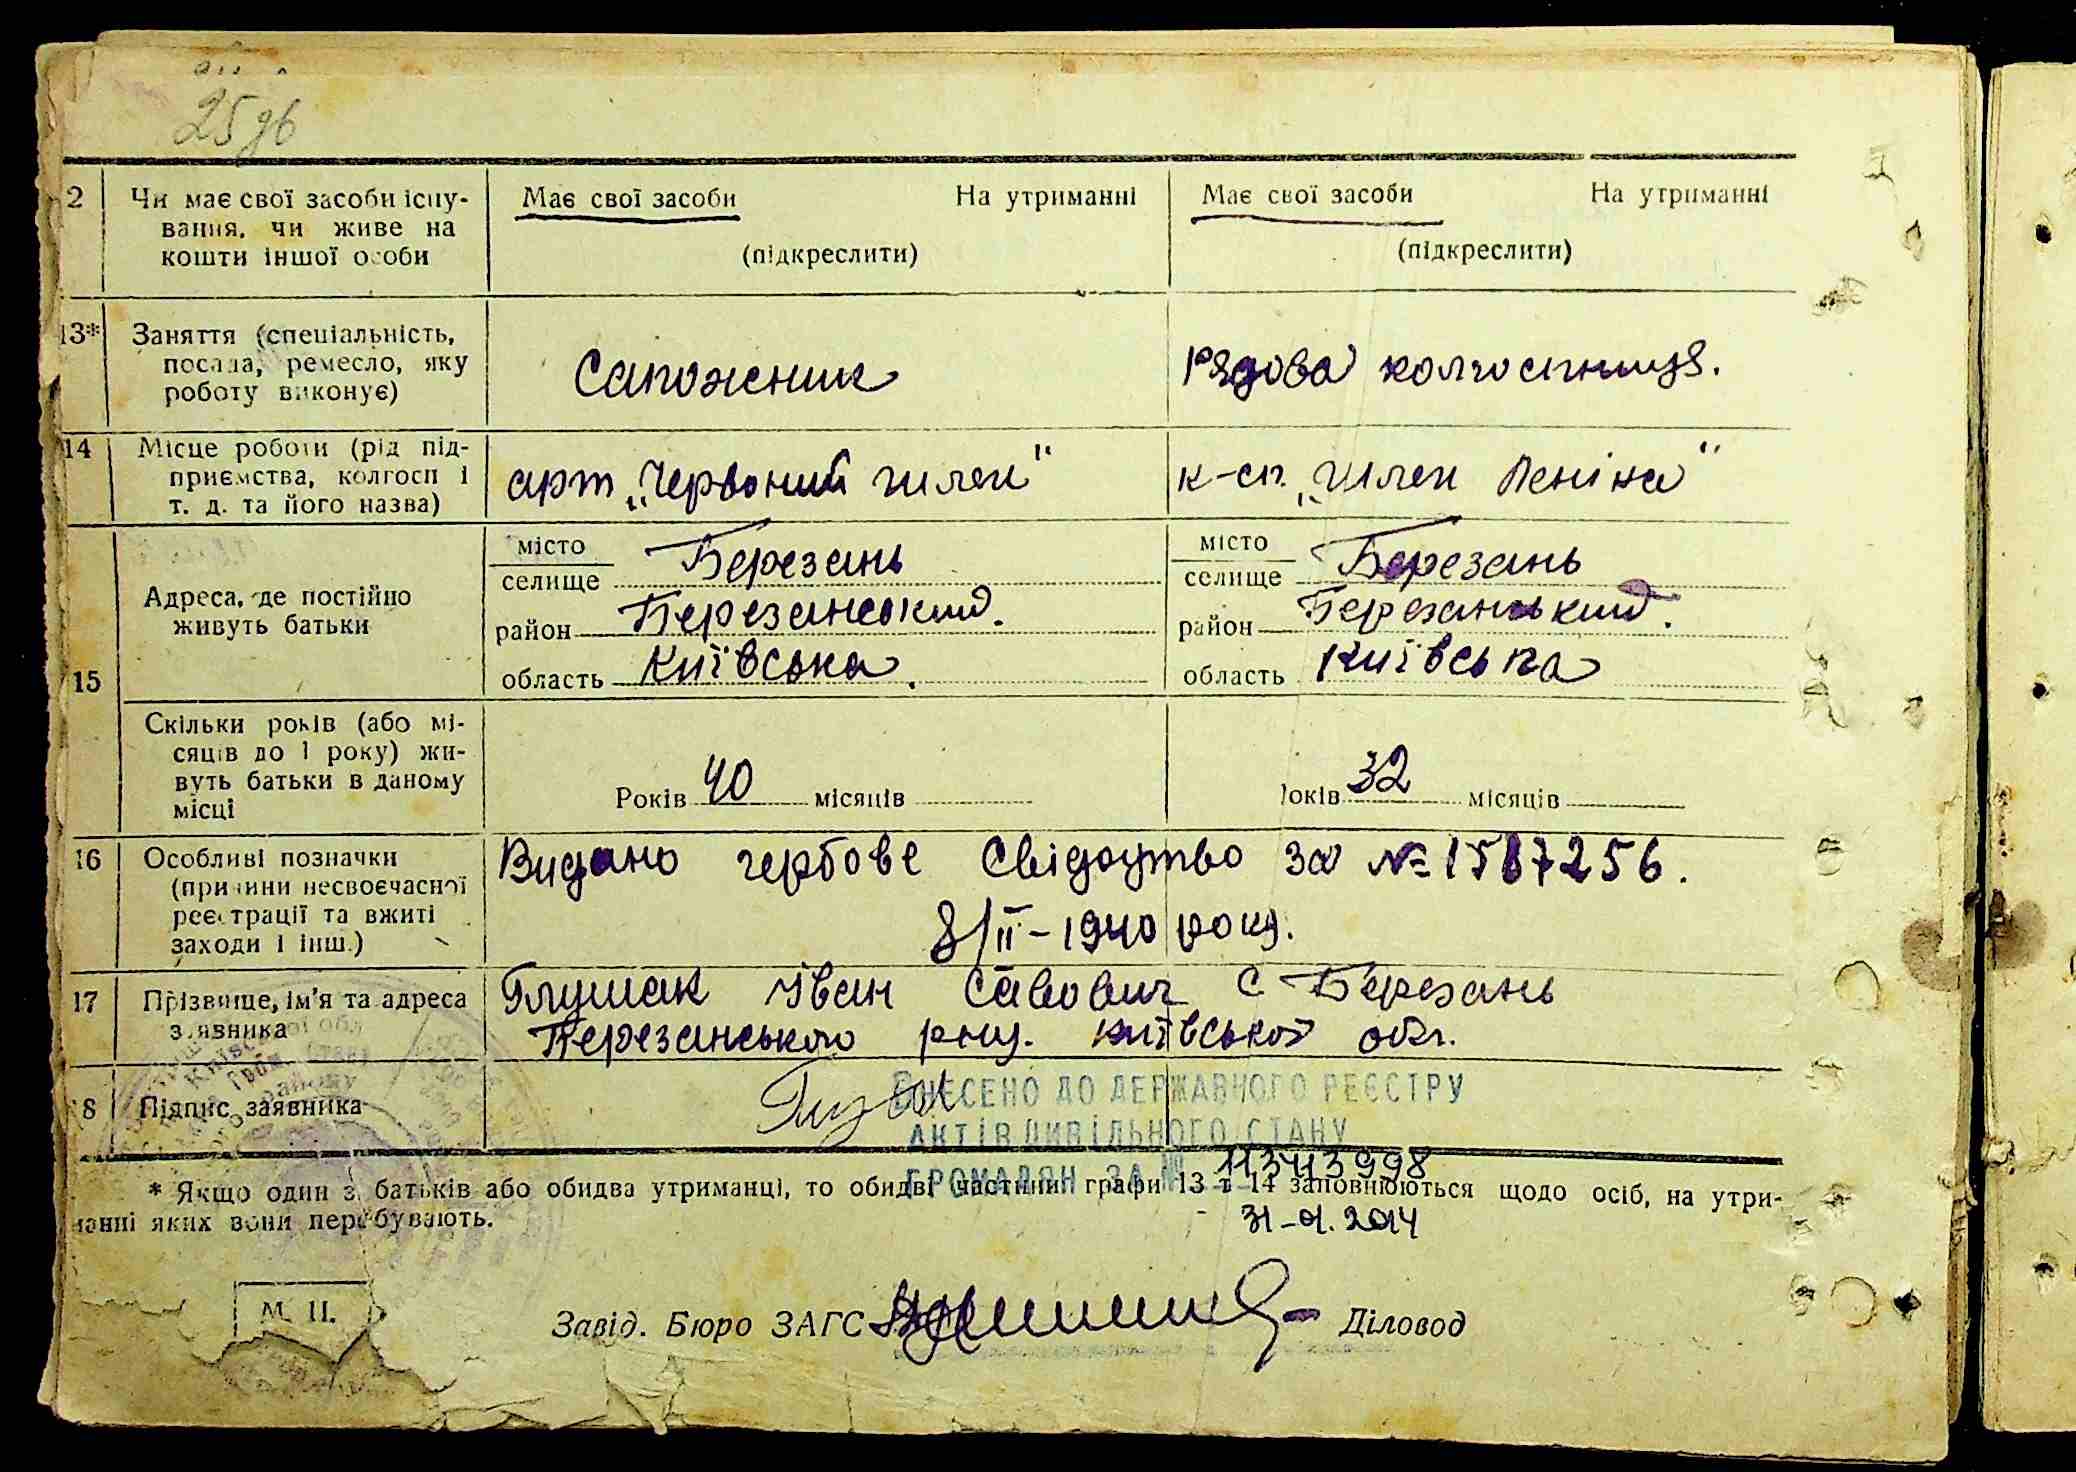 25 дв
2 Чи має свої засоби існу- Має свої засоби На утриманні Має свої засоби На утриманні
вання, чи живе на
кошти іншої особи (підкреслити) (підкреслити)
13* Заняття (спеціальність,
посада, ремесло, яку Сапожник Рядова колгоспниця.
роботу виконує)
14 Місце роботи (рід під-
приємства, колгосп і арт „Червоний шлях" к-сп. „Шлях Леніна"
т. д. та його назва)
15 Адреса, де постійно
живуть батьки
місто селище Березань місто селище Березань
район Березанський. район Березанський.
область Київська. область Київська
Скільки років (або мі-
сяців до 1 року) жи-
вуть батьки в даному Років 40 місяців Років 32 місяців
місці
16 Особливі позначки Видано гербове Свідоцтво за № 1587256.
(причини несвоєчасної
реєстрації та вжиті 8/II-1940 року.
заходи і інш.)
17 Прізвище, ім'я та адреса Глушак Іван Савович с Березань
заявника Березанського рну. Київської обл.
18 Підпис заявника
ВНЕСЕНО ДО ДЕРЖАВНОГО РЕЄСТРУ
АКТІВ ЦИВІЛЬНОГО СТАНУ
ГРОМАДЯН ЗА № 11343998
* Якщо один з батьків або обидва утриманці, то обидві частини графи 13 і 14 заповнюються щодо осіб, на утри-
манні яких вони перебувають.
31-01.2014
М. П.
Завід. Бюро ЗАГС Діловод